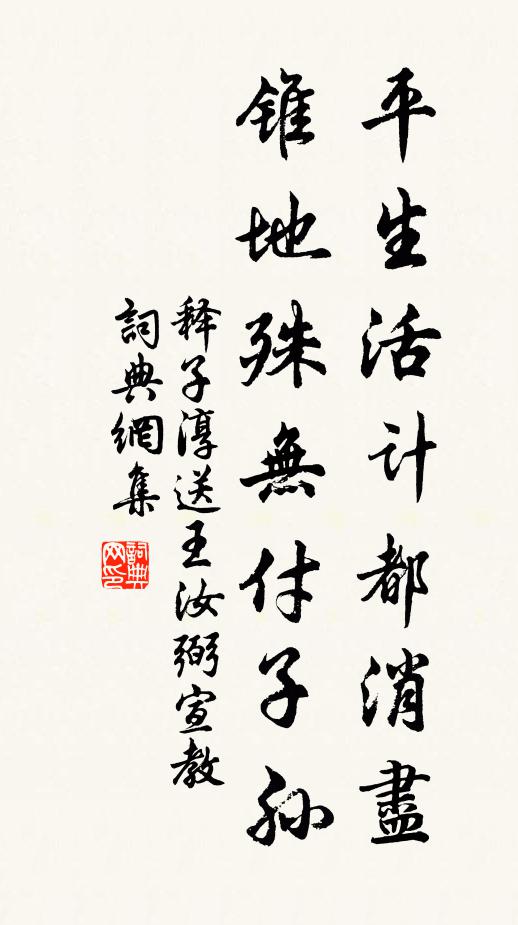 平生活计都消盡
錐地殊無付子孙
释子淳送王汝弼宣教
詞典網集
詞典网印